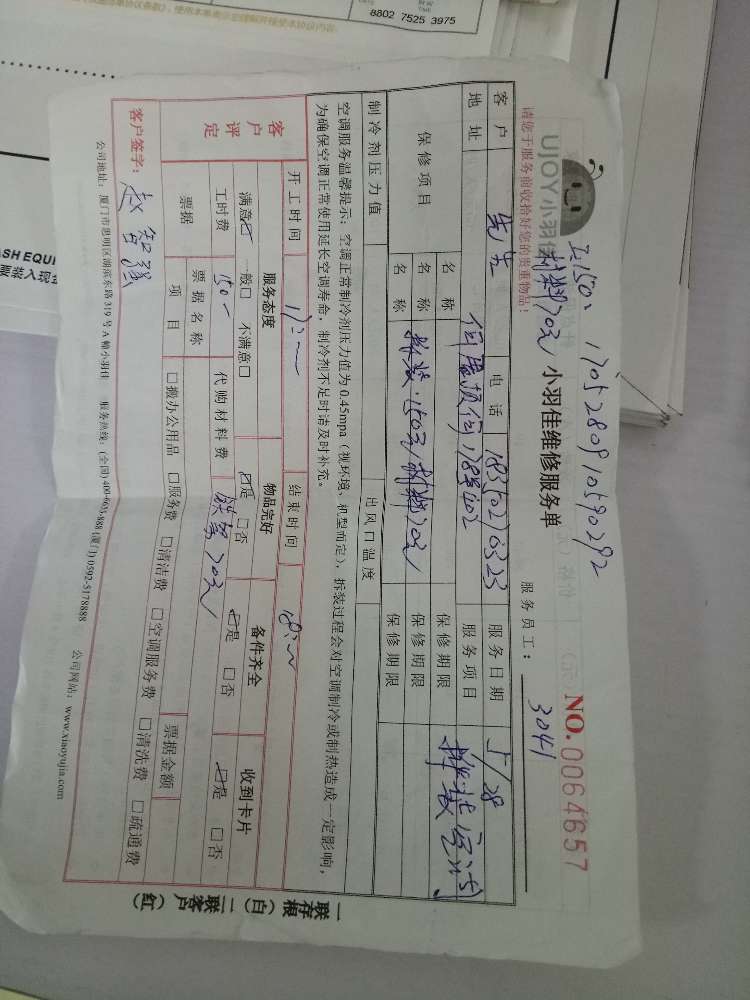 8802 7525 3975
ASH EQUI
要装入现金
工150、
材料70元
1705280910590292
UJOY小羽佳
请您于服务前收拾好您的贵重物品!
小羽佳维修服务单
服务员工:
3041
NO.0064657
客户
先生
电话
18350270323
服务日期
5/28
地址
402
服务项目
保修项目
名称
保修期限
名称
拆装:150元 材料70元
保修期限
名称
保修期限
制冷剂压力值
出风口温度
空调服务温馨提示:空调正常制冷剂压力值为0.45mpa(视环境、机型而定),拆装过程会对空调制冷或制热造成一定影响,
为确保空调正常使用延长空调寿命,制冷剂不足时请及时补充。
开工时间
17:
结束时间
18:
客户评定
服务态度
物品完好
备件齐全
收到卡片
满意☑ 一般□ 不满意□
☑是 □否
☑是 □否
☑是 □否
工时费
150-
代购材料费
铁架70元
票据
票据名称
票据金额
项目
□搬办公用品 □服务费 □清洁费 □空调服务费 □清洗费 □疏通费
客户签字:
赵智强
公司地址:厦门市思明区湖滨东路319号A幢小羽佳 服务热线:(全国)400-603-888 (厦门) 0592-5178888 公司网站:www.xiaoyujia.com
一联存根(白)二联客户(红)